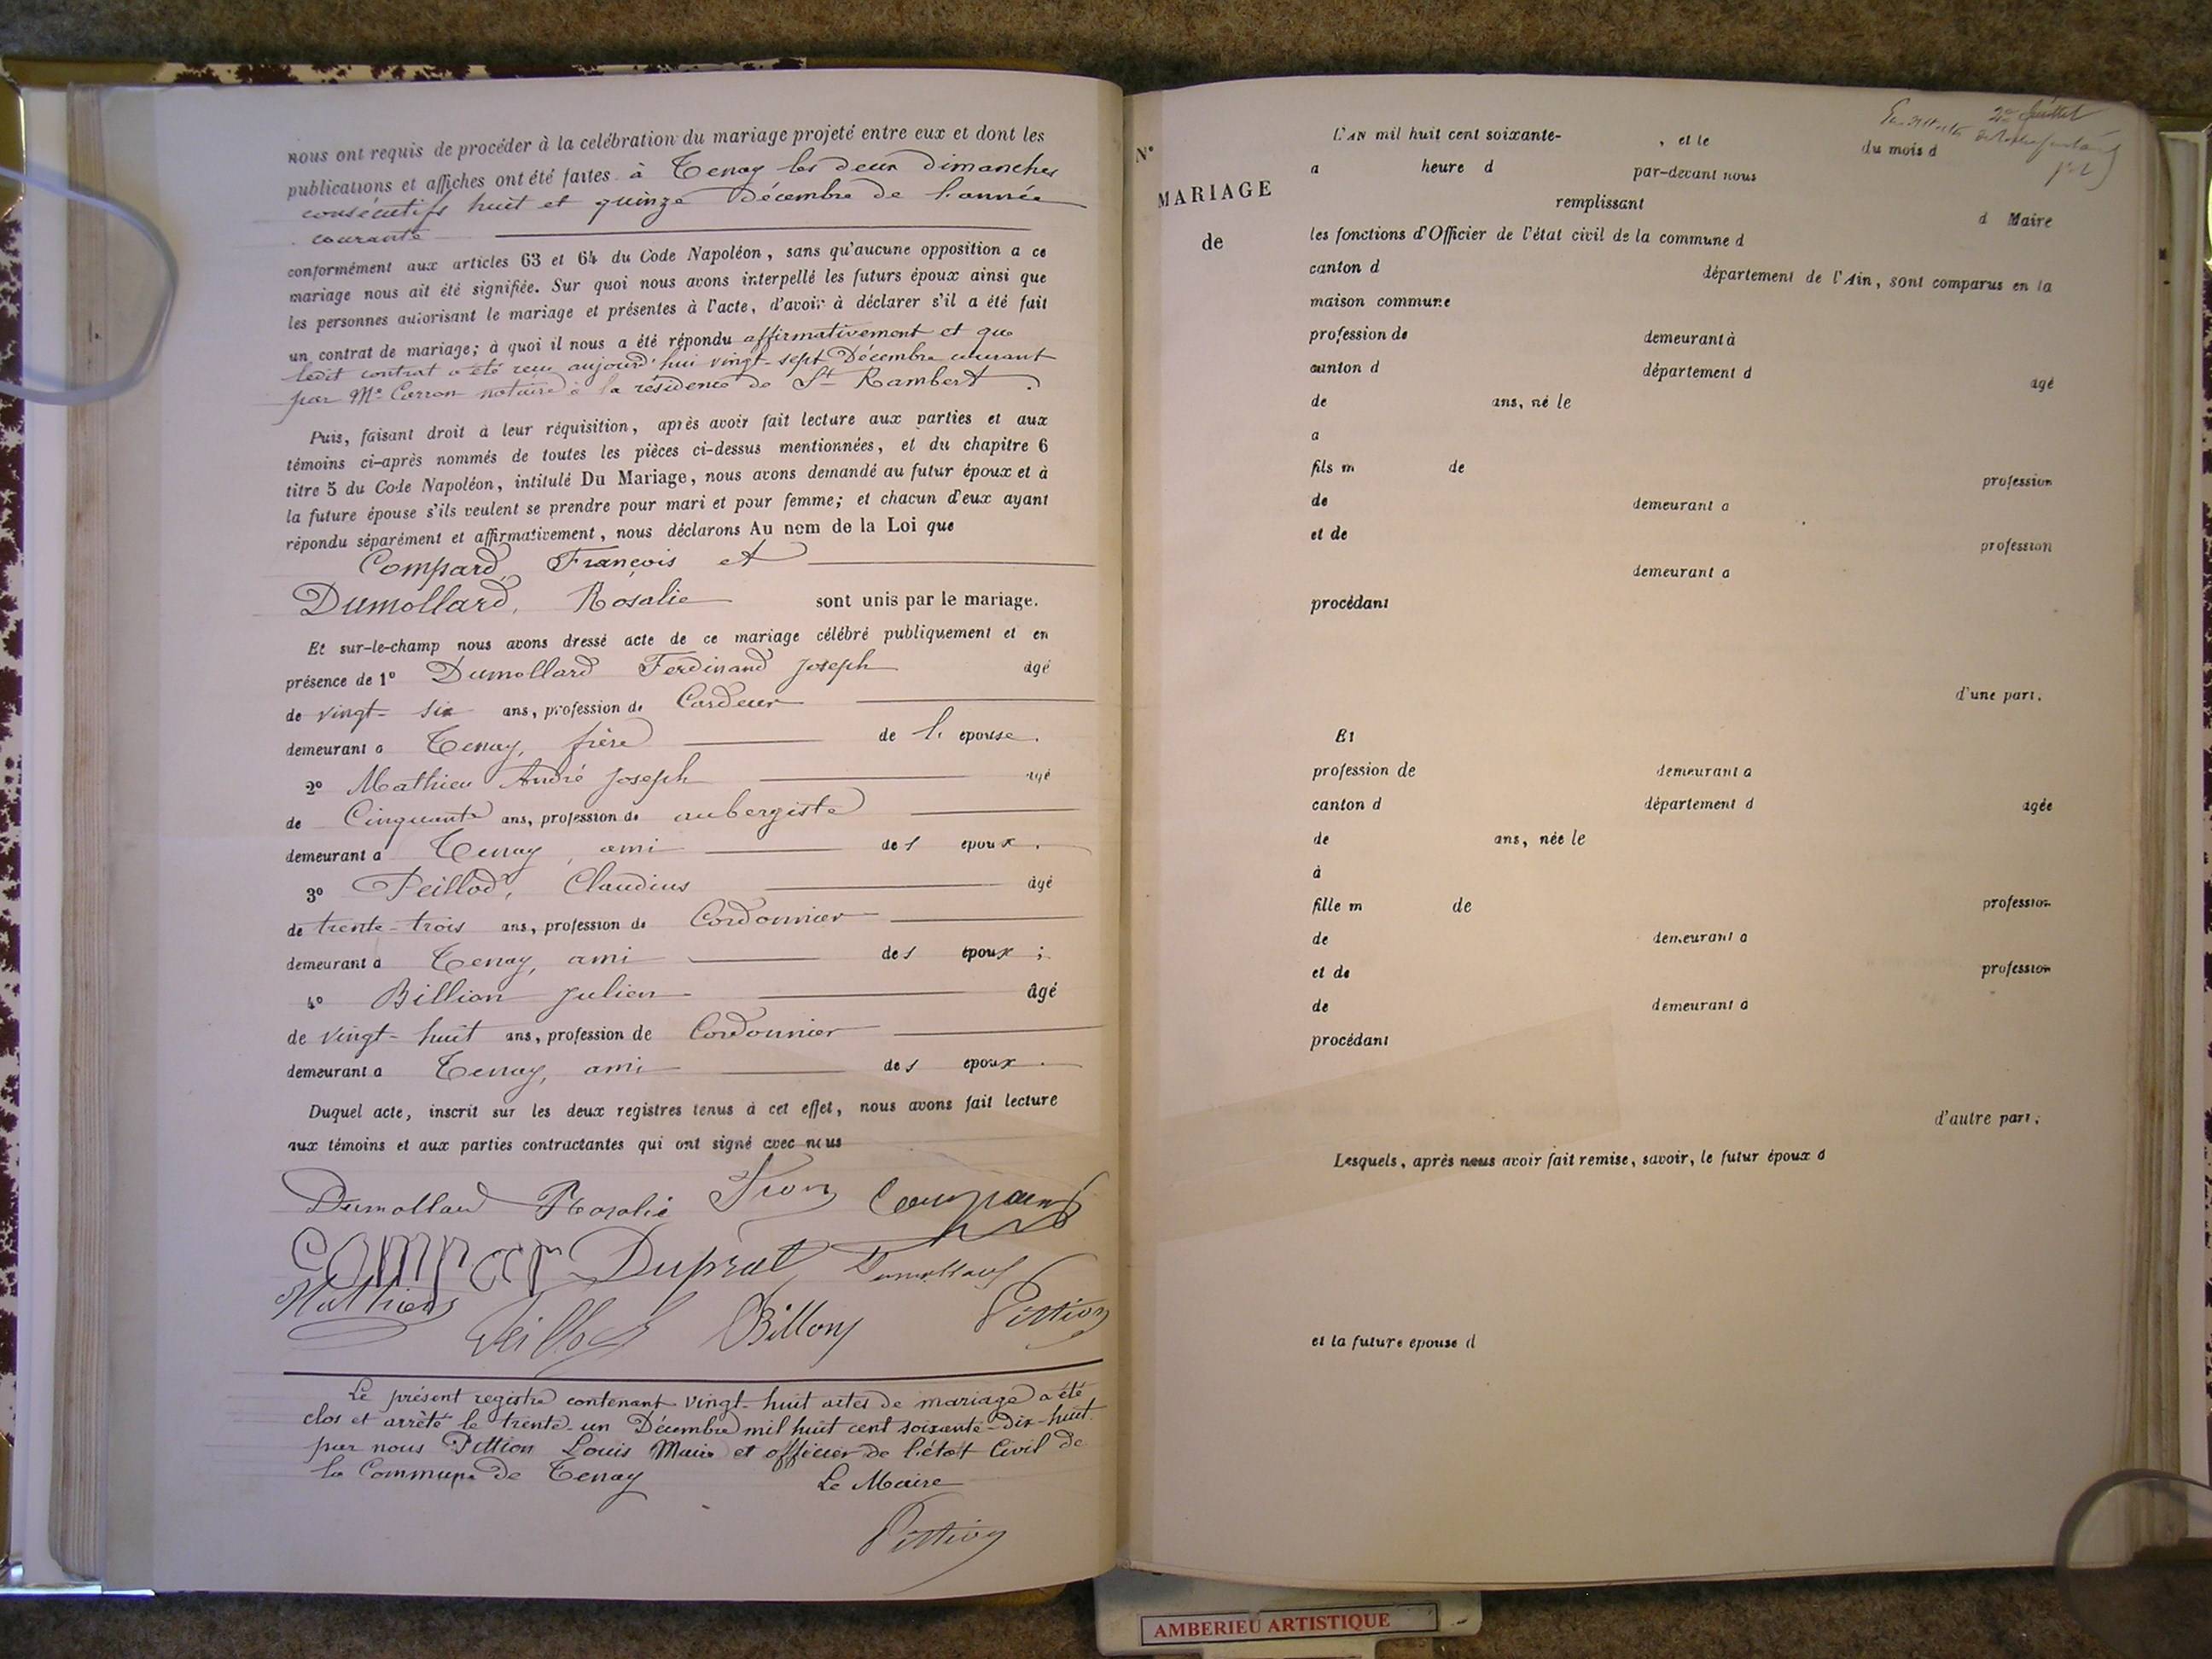 nous ont requis de procéder à la celébration du mariage projeté entre eux et dont les
publications et affiches ont été faites à Tenay les deux dimanches
consécutifs huit et quinze Décembre de l'année
courante
conformément aux articles 63 et 64 du Code Napoléon, sans qu'aucune opposition a ce
mariage nous ait été signifiée. Sur quoi nous avons interpellé les futurs époux ainsi que
les personnes autorisant le mariage et présentes à l'acte, d'avoir à déclarer s'il a été fait
un contrat de mariage; à quoi il nous a été répondu affirmativement et que
ledit contrat a été reçu aujourd'hui vingt-sept Décembre courant
par Me Carron notaire à la résidence de St Rambert.
Puis, faisant droit à leur réquisition, après avoir fait lecture aux parties et aux
témoins ci-après nommés de toutes les pièces ci-dessus mentionnées, et du chapitre 6
titre 5 du Code Napoléon, intitulé Du Mariage, nous avons demandé au futur époux et à
la future épouse s'ils veulent se prendre pour mari et pour femme; et chacun d'eux ayant
répondu séparément et affirmativement, nous déclarons Au nom de la Loi que
Compard, François et
Dumollard, Rosalie sont unis par le mariage.
Et sur-le-champ nous avons dressé acte de ce mariage célébré publiquement et en
présence de 1° Dumollard Ferdinand Joseph âgé
de vingt-six ans, profession de Cardeur
demeurant a Tenay, frère de l' epouse.
2° Mathieu André Joseph agé
de Cinquante ans, profession de aubergiste
demeurant a Tenay, ami des epoux.
3° Peillod, Claudius âgé
de trente-trois ans, profession de Cordonnier
demeurant a Tenay, ami des époux;
4° Billion Julien âgé
de vingt-huit ans, profession de Cordonnier
demeurant a Tenay, ami des epoux.
Duquel acte, inscrit sur les deux registres tenus à cet effet, nous avons fait lecture
aux témoins et aux parties contractantes qui ont signé avec nous
Dumollard Rosalie Compard
Compar Duprat Dumollard
Mathieu Peillod Billion Pittion
Le présent registre contenant vingt-huit actes de mariage a été
clos et arrêté le trente-un Décembre mil huit cent soixante-Dix-huit
par nous Pittion Louis Maire et officier de l'état Civil de
la Commune de Tenay Le Maire
Pittion
N°
MARIAGE
de
L'AN mil huit cent soixante- , et le du mois d
a heure d par-devant nous
remplissant d Maire
les fonctions d'Officier de l'état civil de la commune d
canton d département de l'Ain, sont comparus en la
maison commune
profession de demeurant à
canton d département d agé
de ans, né le
a
fils m de profession
de demeurant a
et de profession
demeurant a
procédant
d'une part.
Et
profession de demeurant a
canton d département d agée
de ans, née le
à
fille m de profession
de demeurant a
et de profession
de demeurant a
procédant
d'autre part;
Lesquels, après nous avoir fait remise, savoir, le futur époux d
et la future epouse d
AMBERIEU ARTISTIQUE